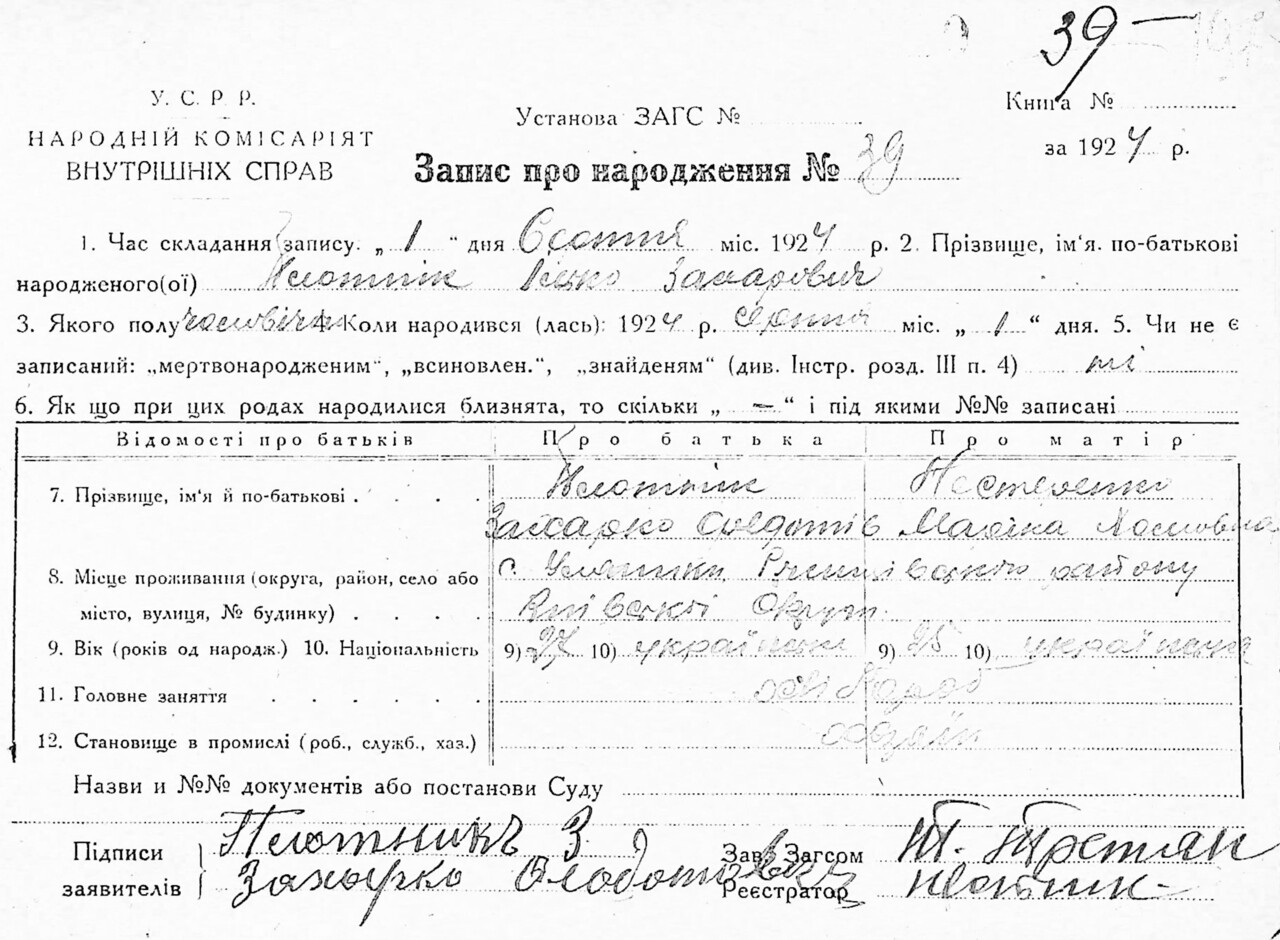 39 —
У. С. Р. Р.
НАРОДНІЙ КОМІСАРІЯТ
ВНУТРІШНІХ СПРАВ
Установа ЗАГС №
Книга №
за 1924 р.
Запис про народження № 39
1. Час складання запису. „ 1 “ дня міс. 1924 р. 2. Прізвище, ім'я. по-батькові
народженого(ої) Плотнік Захарович
3. Якого полу чоловіча 4. Коли народився (лась): 1924 р. міс. „ 1 “ дня. 5. Чи не є
записаний: „мертвонародженим“, „всиновлен.“, „знайденям“ (див. Інстр. розд. III п. 4) ні
6. Як що при цих родах народилися близнята, то скільки „ — “ і під якими №№ записані
Відомості про батьків Про батька Про матір
7. Прізвище, ім'я й по-батькові . . . . Плотнік Нестеренко
Захарко Федотів
8. Місце проживання (округа, район, село або с. району
місто, вулиця, № будинку) . . . . Київської Округи
9. Вік (років од народж.) 10. Національність 9) 27 10) українець 9) 25 10) українка
11. Головне заняття . . . . . .
12. Становище в промислі (роб., служб., хаз.)
Назви и №№ документів або постанови Суду
Підписи Плотникъ З
заявителів Захарко
Зав. Загсом Т. Третяк
Реєстратор